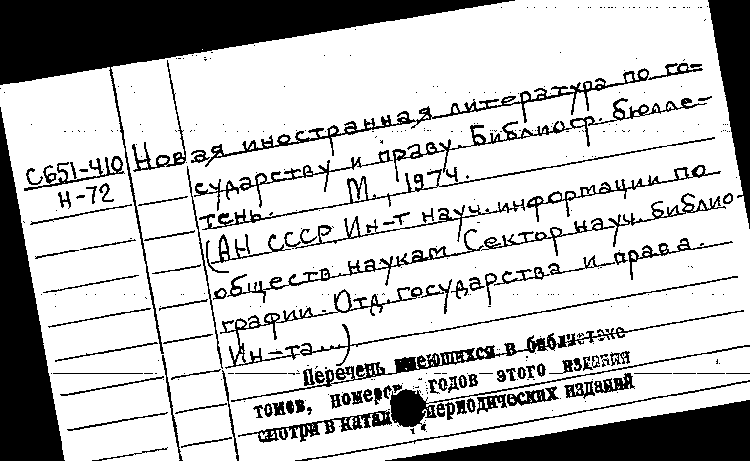 С651-410
Н-72
Новая иностранная литература по го=
сударству и праву. Библиогр. бюлле-
тень. М., 1974.
(АН СССР. Ин-т науч. информации по
обществ. наукам. Сектор науч. библио-
графии. Отд. государства и права.
Ин-та...)
Перечень имеющихся в библиотеке
томов, номеров, годов этого издания
смотри в катал периодических изданий